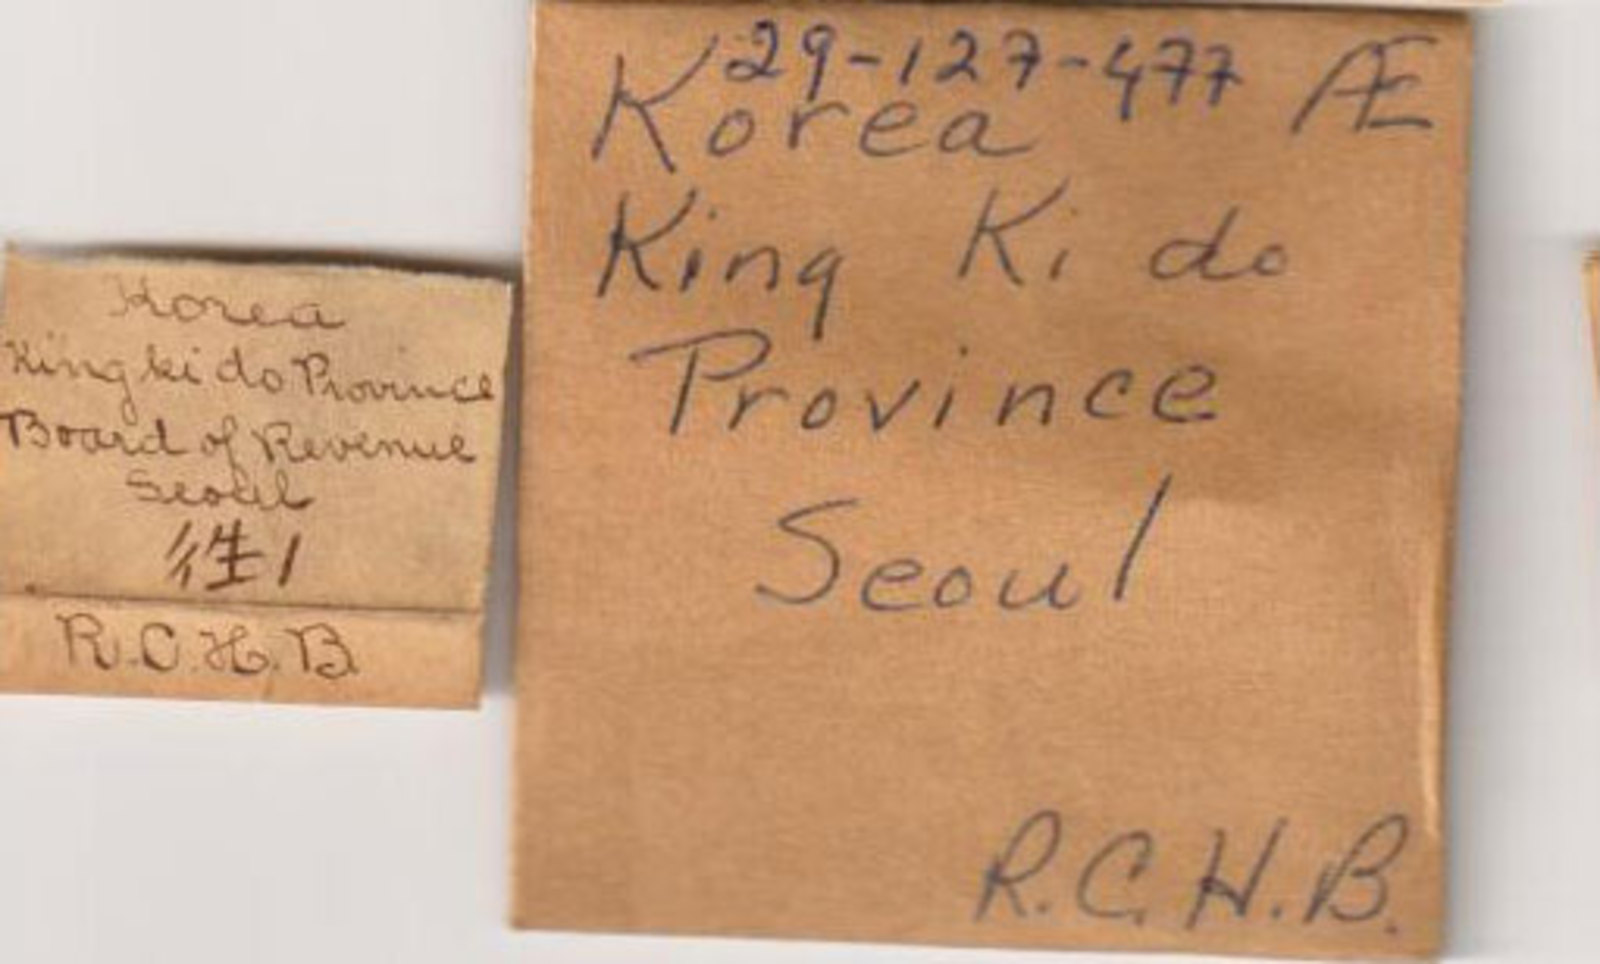 Korea
King ki do Province
Board of Revenue
Seoul
往1
R.C.H.B.
29-127-477 Æ
Korea
King Ki do
Province
Seoul
R.C.H.B.